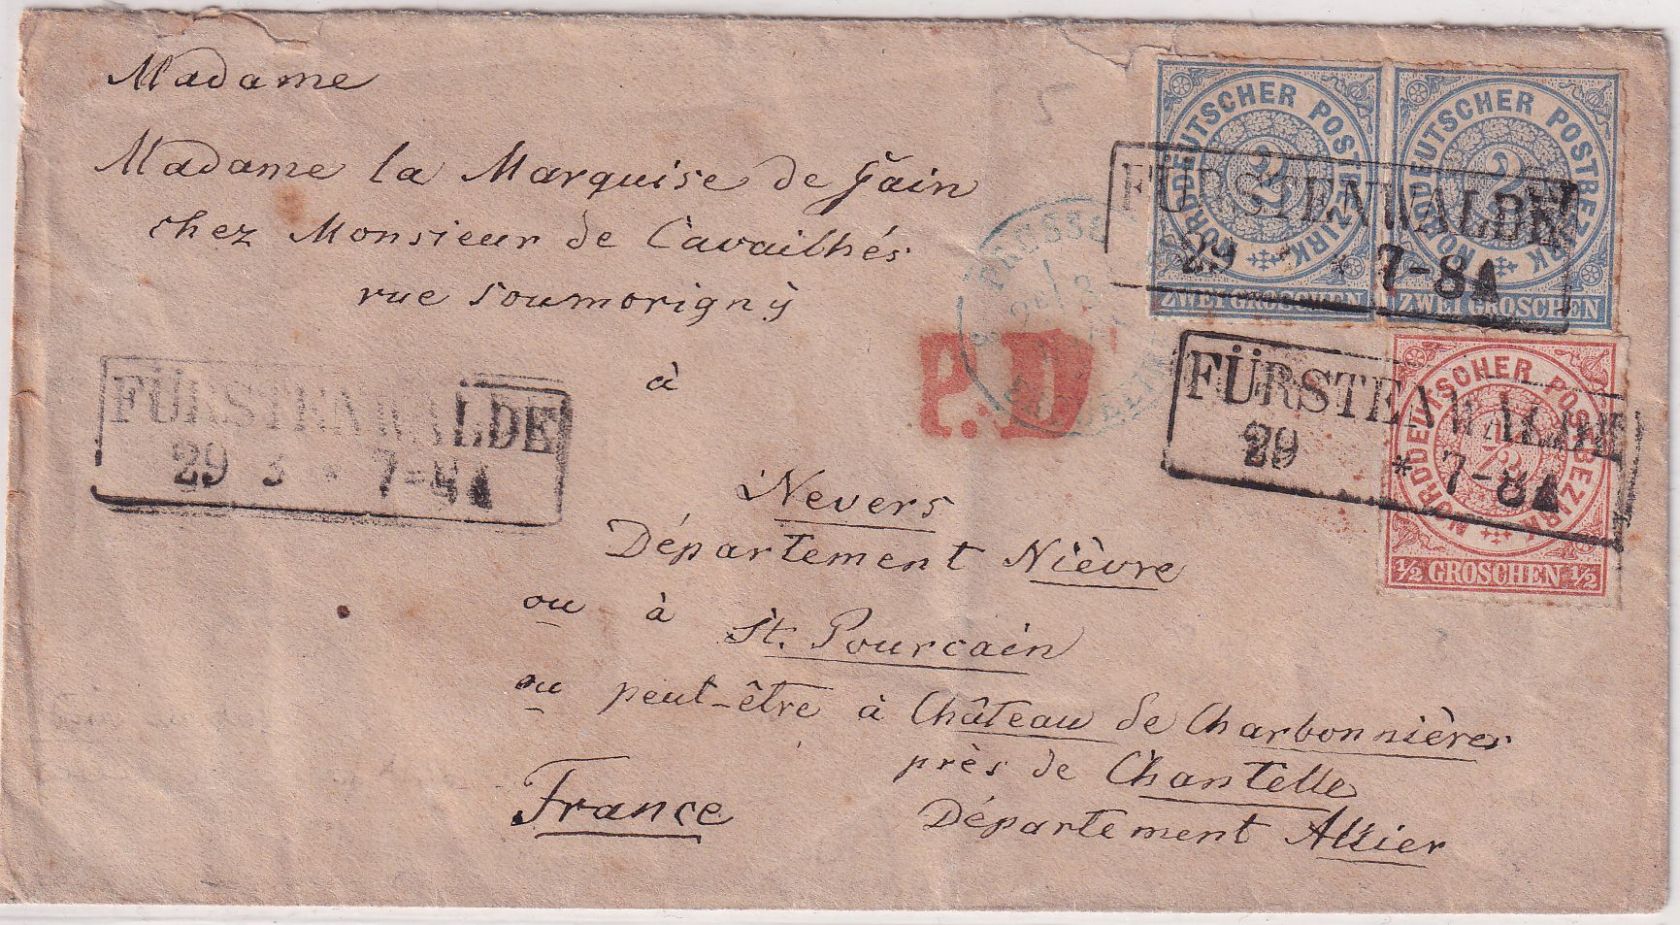 Madame
Madame la Marquise de Jain
chez Monsieur de Cavailhés
rue Soumorigny
à
Nevers
Département Nièvre
ou à
St. Pourcain
ou peut-être à Château de Charbonnières
près de Chantelle
Département Allier
France
5
NORDDEUTSCHER POSTBEZIRK
2
ZWEI GROSCHEN
NORDDEUTSCHER POSTBEZIRK
2
ZWEI GROSCHEN
FÜRSTENWALDE
29 * 7-8
NORDDEUTSCHER POSTBEZIRK
1/2
1/2 GROSCHEN 1/2
FÜRSTENWALDE
29 * 7-8
FÜRSTENWALDE
29 3 * 7-8
P.D
PRUSSE
3